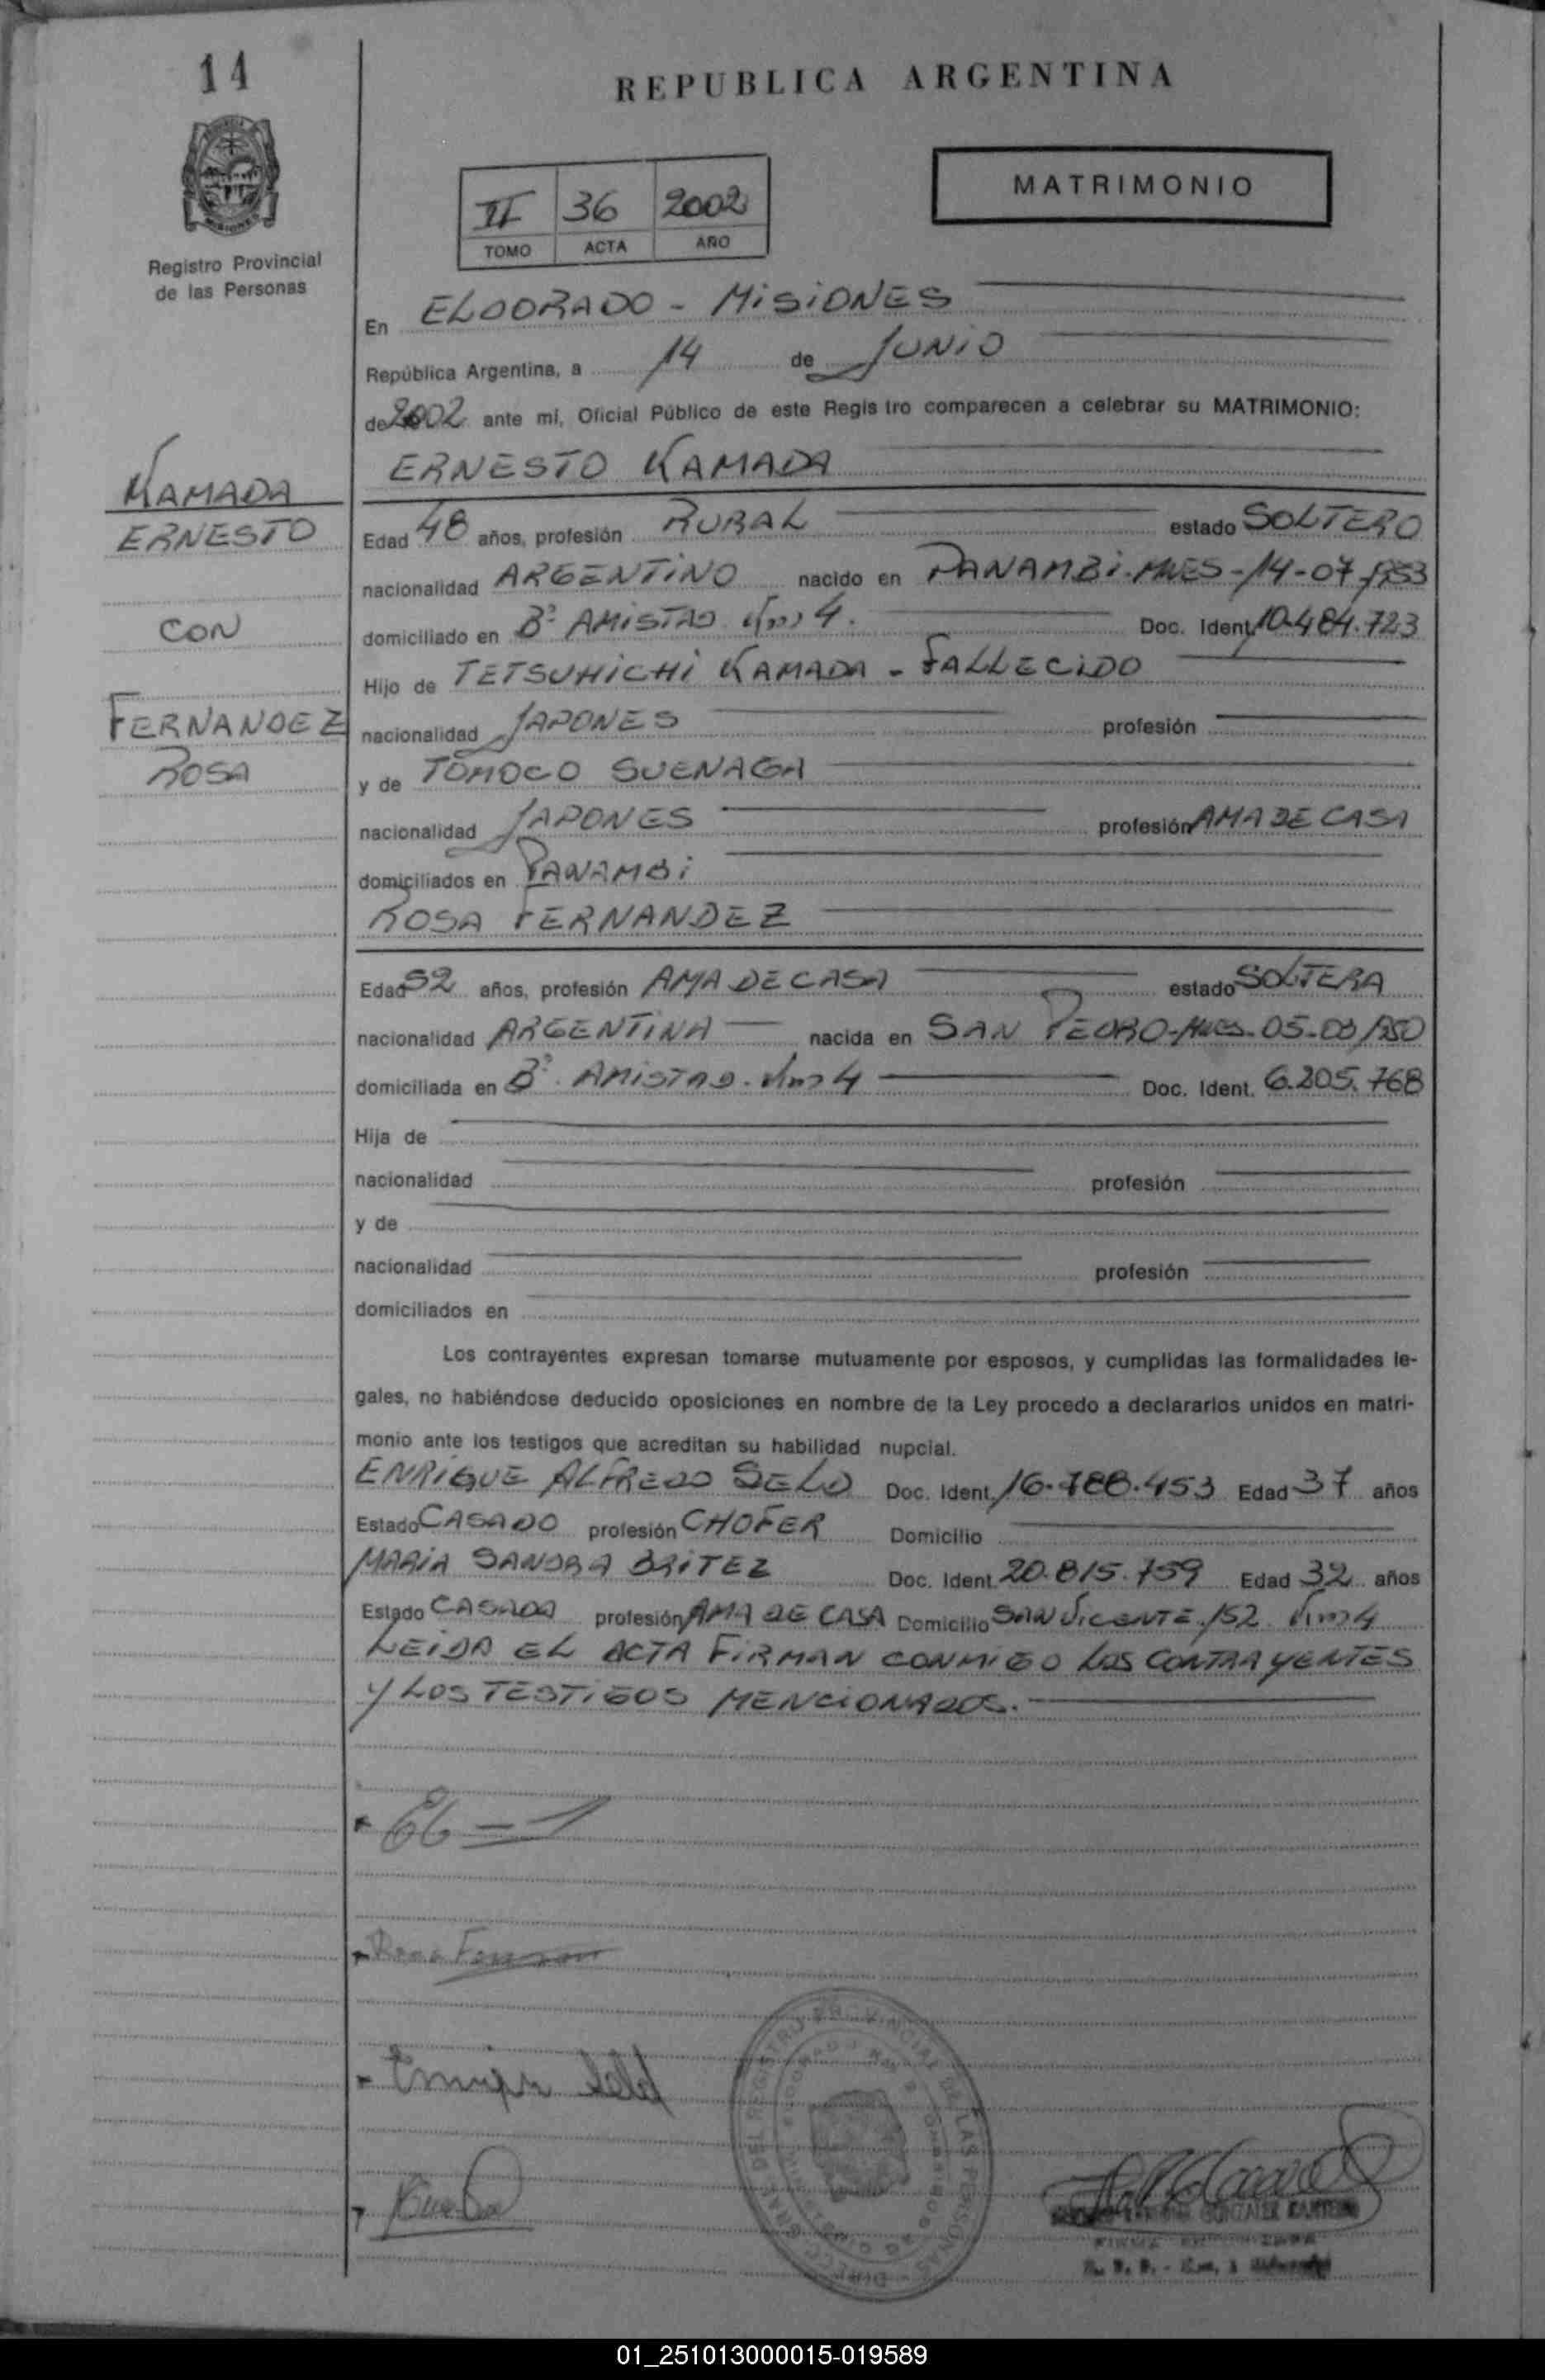 14
REPUBLICA ARGENTINA
MATRIMONIO
II 36 2002
TOMO ACTA AÑO
Registro Provincial
de las Personas
En ELDORADO - MISIONES
República Argentina, a 14 de JUNIO
de 2002 ante mi, Oficial Público de este Registro comparecen a celebrar su MATRIMONIO:
ERNESTO KAMADA
KAMADA
ERNESTO
CON
FERNANDEZ
ROSA
Edad 48 años, profesión RURAL estado SOLTERO
nacionalidad ARGENTINO nacido en PANAMBI-MNES-14-07-1953
domiciliado en Bº AMISTAD Km 4. Doc. Ident. 10.484.723
Hijo de TETSUHICHI KAMADA - FALLECIDO
nacionalidad JAPONES profesión
y de TOMOCO SUENAGA
nacionalidad JAPONES profesión AMA DE CASA
domiciliados en PANAMBI
ROSA FERNANDEZ
Edad 52 años, profesión AMA DE CASA estado SOLTERA
nacionalidad ARGENTINA nacida en SAN PEDRO-MNES-05-03/1950
domiciliada en Bº. AMISTAD. Km 4 Doc. Ident. 6.205.768
Hija de
nacionalidad profesión
y de
nacionalidad profesión
domiciliados en
Los contrayentes expresan tomarse mutuamente por esposos, y cumplidas las formalidades le-
gales, no habiéndose deducido oposiciones en nombre de la Ley procedo a declararlos unidos en matri-
monio ante los testigos que acreditan su habilidad nupcial.
ENRIQUE ALFREDO SELD Doc. Ident. 16.788.453 Edad 37 años
Estado CASADO profesión CHOFER Domicilio
MARIA SANDRA BRITEZ Doc. Ident. 20.815.759 Edad 32 años
Estado CASADA profesión AMA DE CASA Domicilio SAN VICENTE 152 Km 4
LEIDA EL ACTA FIRMAN CONMIGO LOS CONTRAYENTES
Y LOS TESTIGOS MENCIONADOS.
Rosa
DEL REGISTRO PROVINCIAL DE LAS PERSONAS
GONZALEZ
01_251013000015-019589